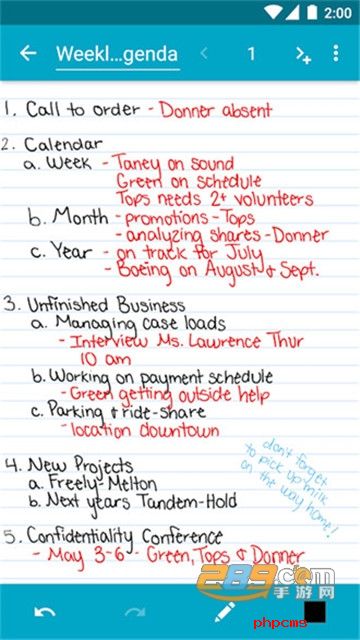 2:00
Weekl...genda
1
1. Call to order - Donner absent
2. Calendar
a. Week - Taney on sound
Green on schedule
Tops needs 2+ volunteers
b. Month - promotions - Tops
- analyzing shares - Donner
c. Year - on track for July
- Boeing on August & Sept.
3. Unfinished Business
a. Managing case loads
- Interview Ms. Lawrence Thur
10 am
b. Working on payment schedule
- Green getting outside help
c. Parking & ride-share
- location downtown
don't forget
to pick up milk
on the way home!
4. New Projects
a. Freely-Melton
b. Next years Tandem-Hold
5. Confidentiality Conference
- May 3-6 - Green, Tops & Donner
289.com
手游网
phpcms